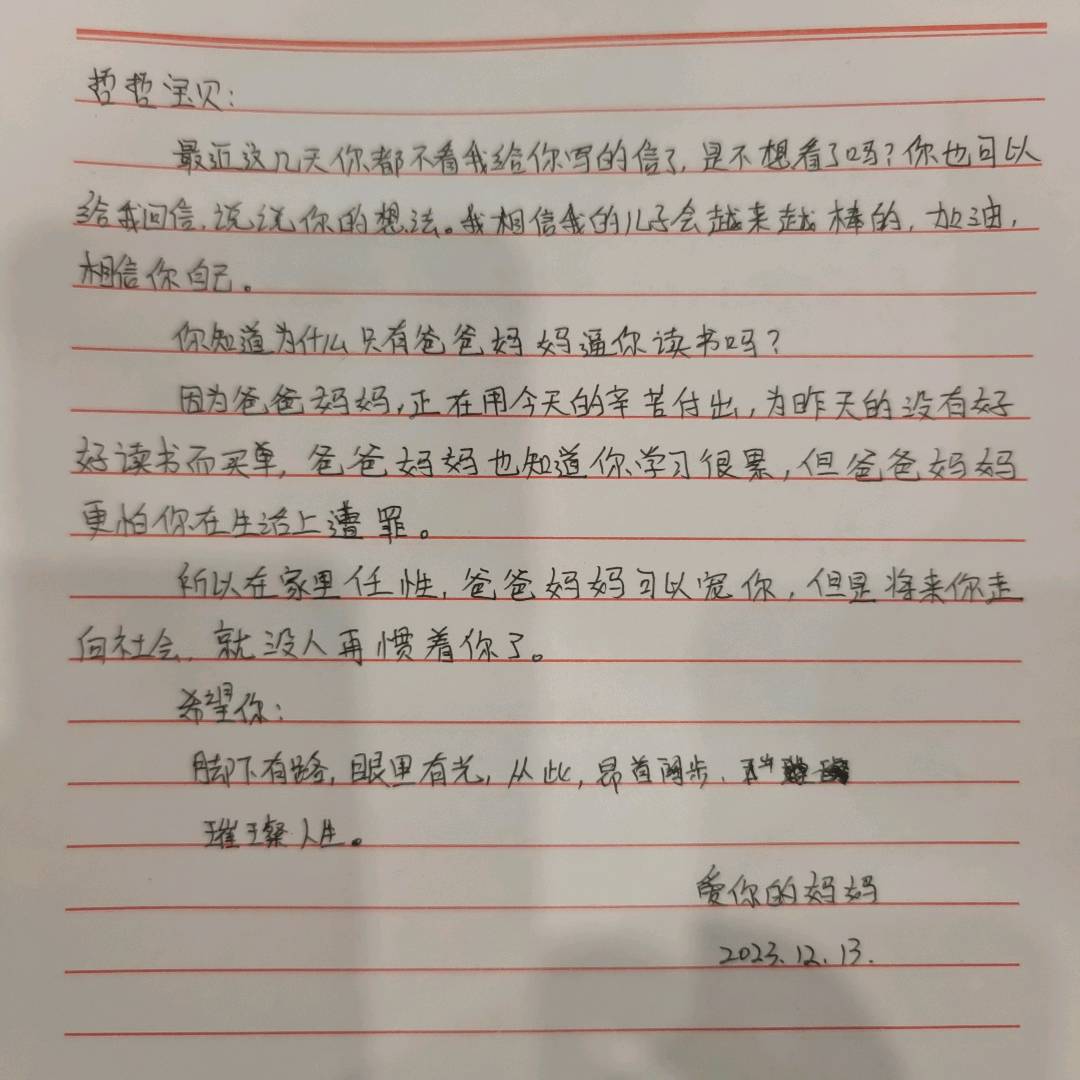 哲哲宝贝：
最近这几天你都不看我给你写的信了，是不想看了吗？你也可以
给我回信，说说你的想法。我相信我的儿子会越来越棒的，加油，
相信你自己。
你知道为什么只有爸爸妈妈逼你读书吗？
因为爸爸妈妈，正在用今天的辛苦付出，为昨天的没有好
好读书而买单，爸爸妈妈也知道你学习很累，但爸爸妈妈
更怕你在生活上遭罪。
所以在家里任性，爸爸妈妈可以宠你，但是将来你走
向社会，就没人再惯着你了。
希望你：
脚下有路，眼里有光，从此，昂首阔步，
璀璨人生。
爱你的妈妈
2023.12.13.